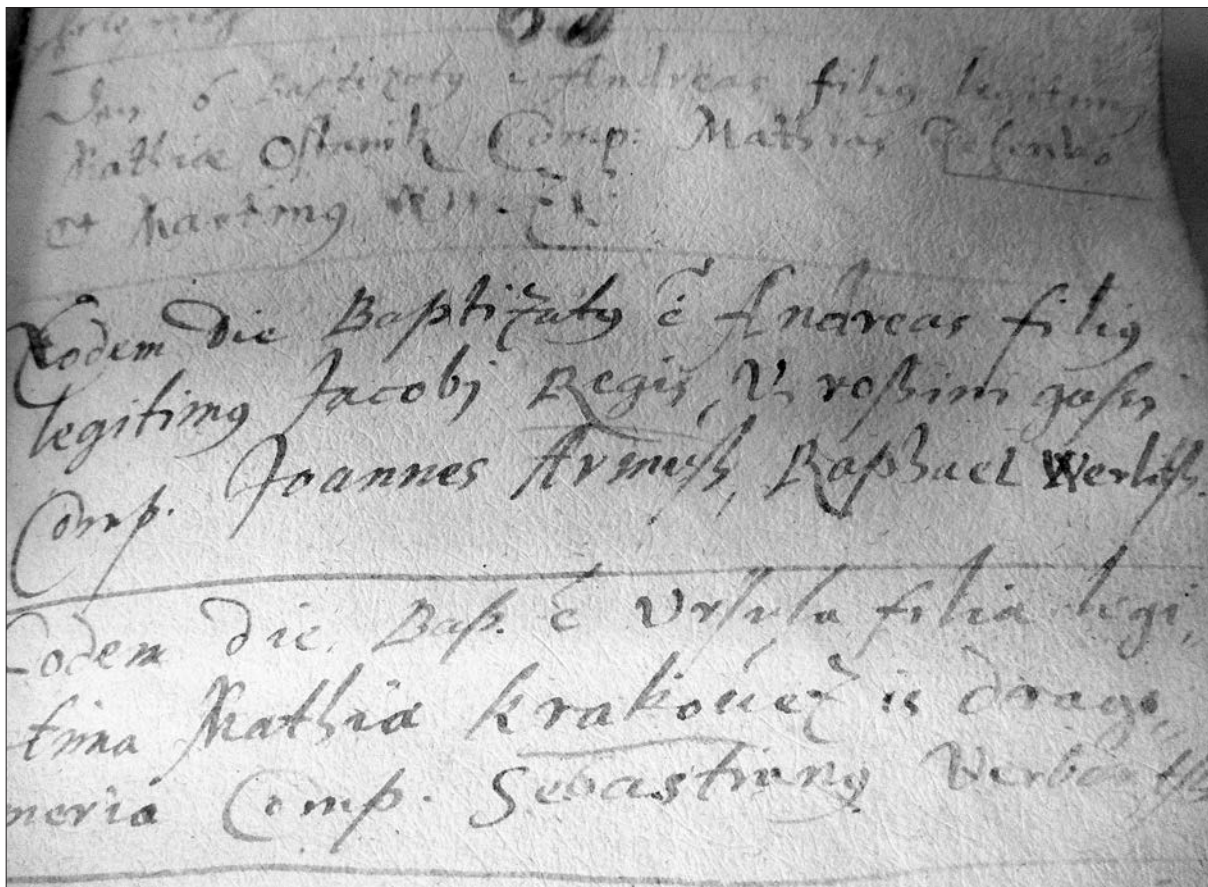 6 Baptizatus ē Andreas filius legitimus
Mathiæ Comp: Mathias
et Martinus
Eodem Die Baptizatus ē Andreas filius
legitimus Jacobj Regis, V roßimi gaßi
Comp. Joannes Armish, Raphael Werlish.
Eodem die Bap. ē Vrsula filia legi,,
tima Mathiæ krakouez is drago,,
meria Comp. Sebastianus